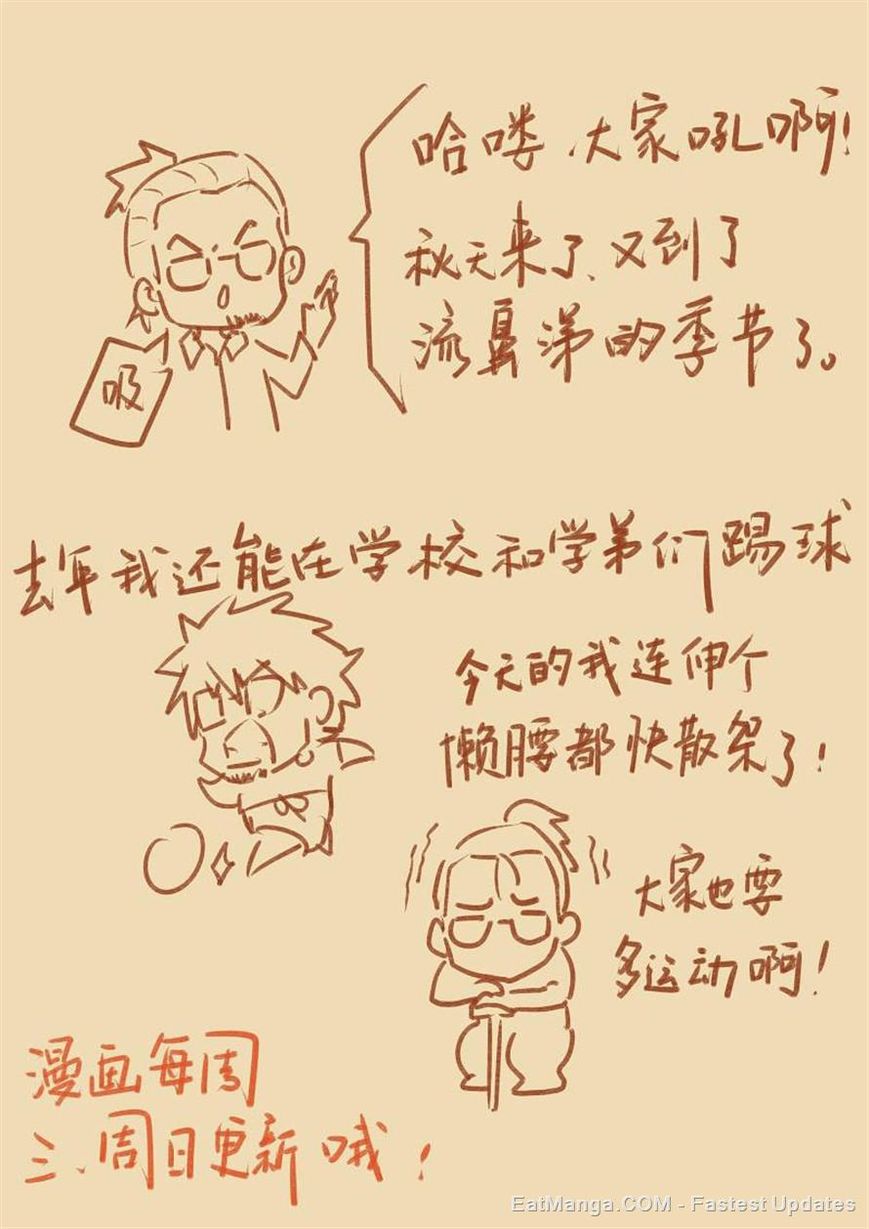 哈喽、大家吼啊!
秋天来了、又到了
流鼻涕的季节了。
吸
去年我还能在学校和学弟们踢球
今天的我连伸个
懒腰都快散架了!
大家也要
多运动啊!
漫画每周
三、周日更新哦!
EatManga.COM - Fastest Updates